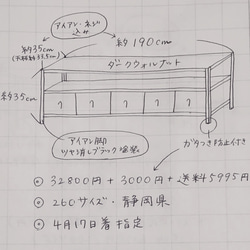 アイアン・ネジ
込み
約35cm
約190cm
ダークウォルナット
約35cm
? ? ? ? ?
アイアン脚
ツヤ消しブラック塗装
ガタつき防止付き
◎ 32800円+3000円+送料45995円
◎ 260サイズ・静岡県
◎ 4月17日着指定